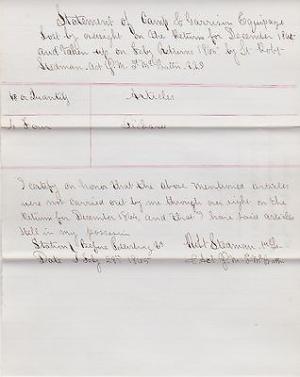 Statement of Camp & Garrison Equipage
Lost by oversight on the Returns for December 1864
and taken up on July Returns 1865 by Lt Robt
Steaman Act Q.M.
No or Quantity Articles
4 Four
I certify on honor that the above mentioned articles
were not carried out by me through over sight on the
Returns for December 1864, and that I have said articles
still in my possession
Station Before Petersburg Va Robt Steaman
Date 1865 Act Q M